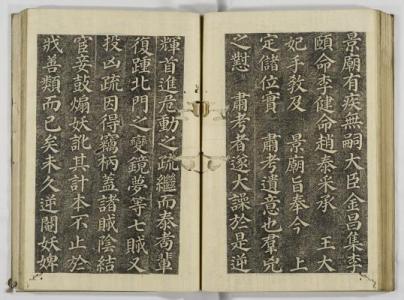 景廟有疾無嗣大臣金昌集李
頤命李健命趙泰采承　王大
妃手教及　景廟旨奉今　上
定儲位實　肅考遺意也羣兇
之懟　肅考者遂大譟於是逆
輝首進危動之疏繼而泰耉輩
復踵北門之變鏡夢等七賊又
投凶疏因得竊柄蓋諸賊陰結
宦妾鼓煽妖訛其計本不止於
戕善類而已矣未久逆閹妖婢